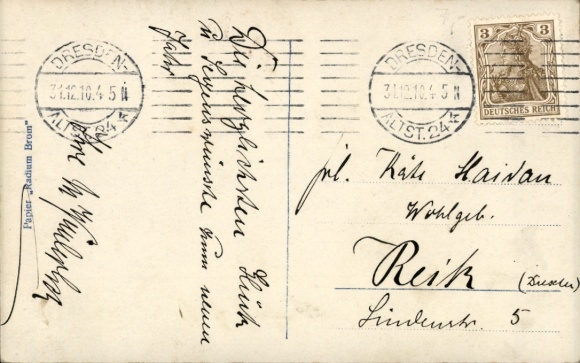 DRESDEN-
31.12.10.4-5 N
ALTST. 24 k
DRESDEN-
31.12.10.4-5 N
ALTST. 24 k
3 3
DEUTSCHES REICH
Die herzlichsten Glück
u Segenswünsche zum neuen
Jahr
Ihr
Papier „Radium Brom"
Frl. Käte Haidan
Wohlgeb.
Reik (Dresden)
Lindenstr. 5